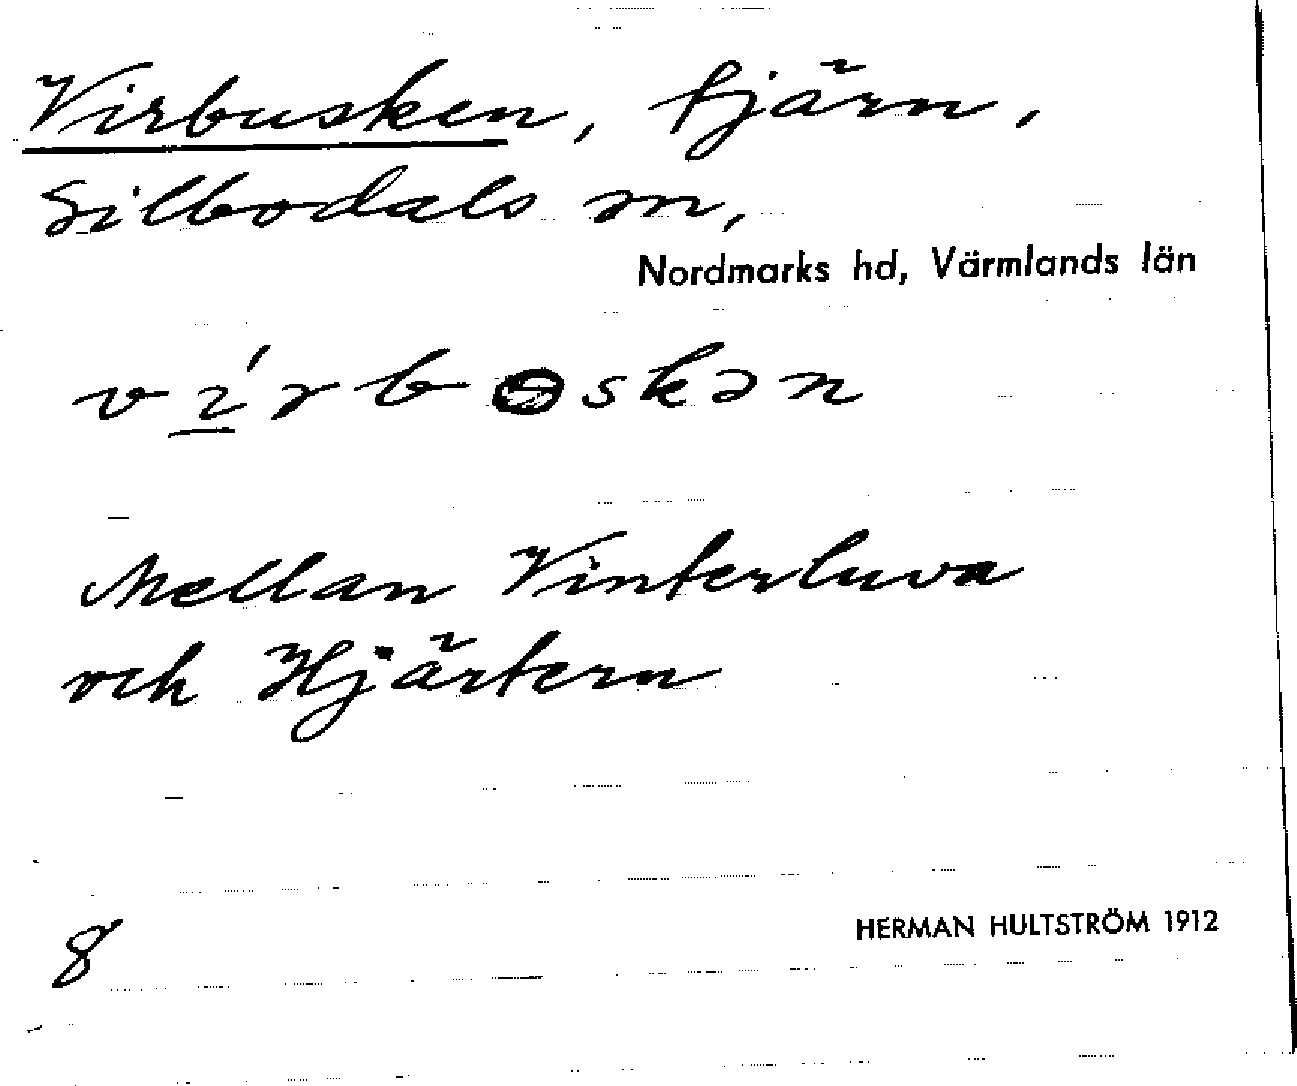 Virbusken, tjärn,
Silbodals sn,
Nordmarks hd, Värmlands län
vírbɵskən
Mellan Vinterluva
och Hjärtern
8
HERMAN HULTSTRÖM 1912